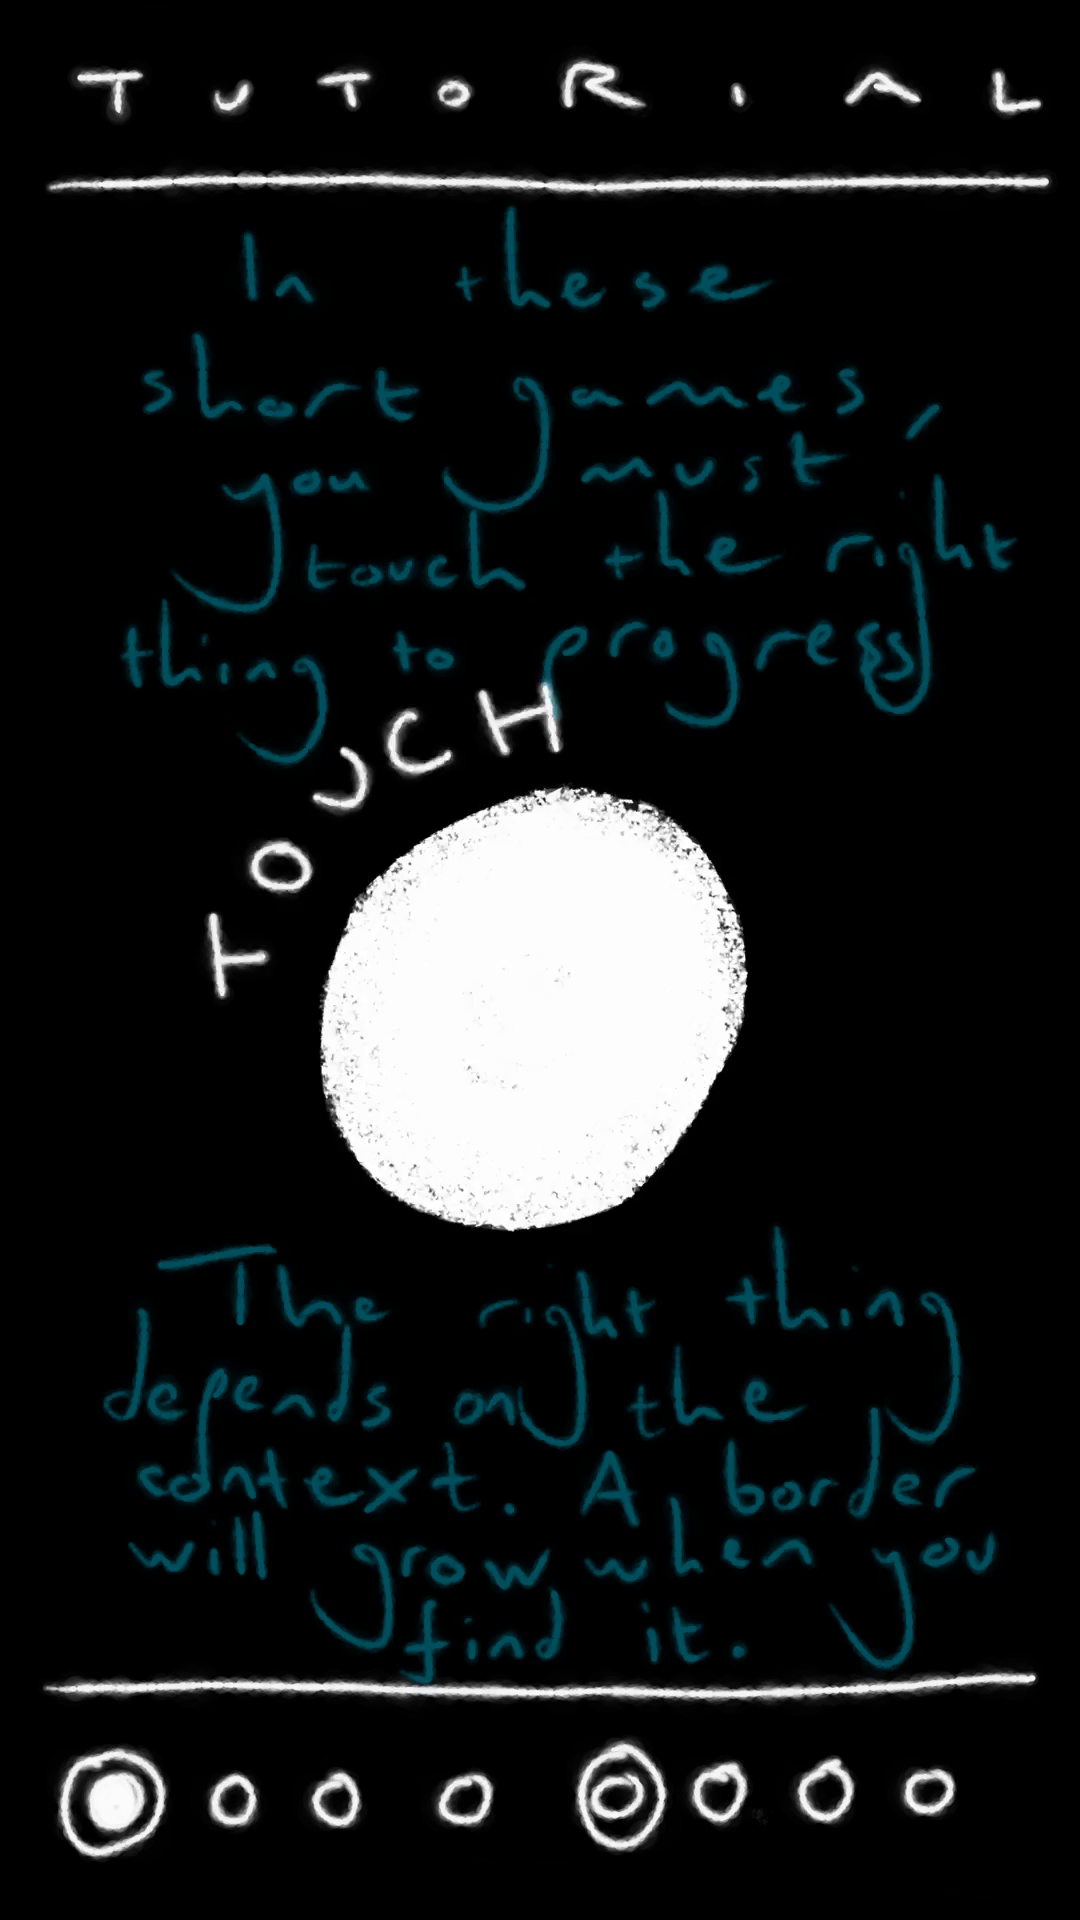 TUTORIAL
In these
short games,
you must
touch the right
thing to progress
TOUCH
The right thing
depends on the
context. A border
will grow when you
find it.